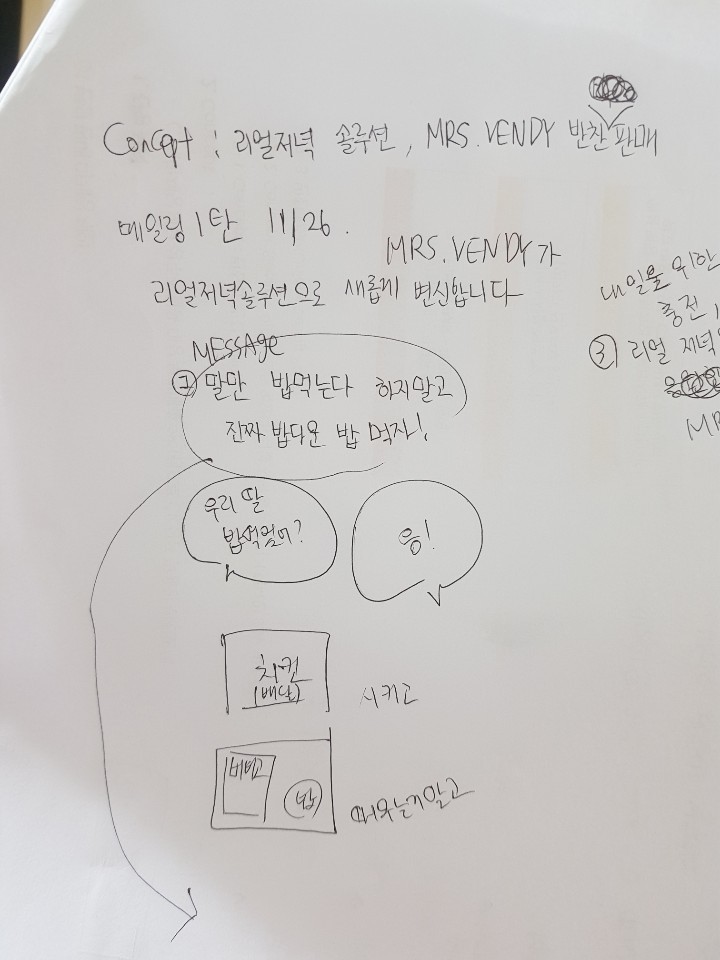 Concept : 리얼저녁 솔루션, MRS. VENDY 반찬 판매
메일링 1탄 11/26.
MRS. VENDY가
리얼저녁솔루션으로 새롭게 변신합니다
MESSAGE
말만 밥먹는다 하지말고
진짜 밥다운 밥 먹자!
우리 딸
밥먹었어?
응!
치킨
(배달)
시키고
비비고
밥
때우는지말고
내일을 위한
충전
③ 리얼 저녁
MR